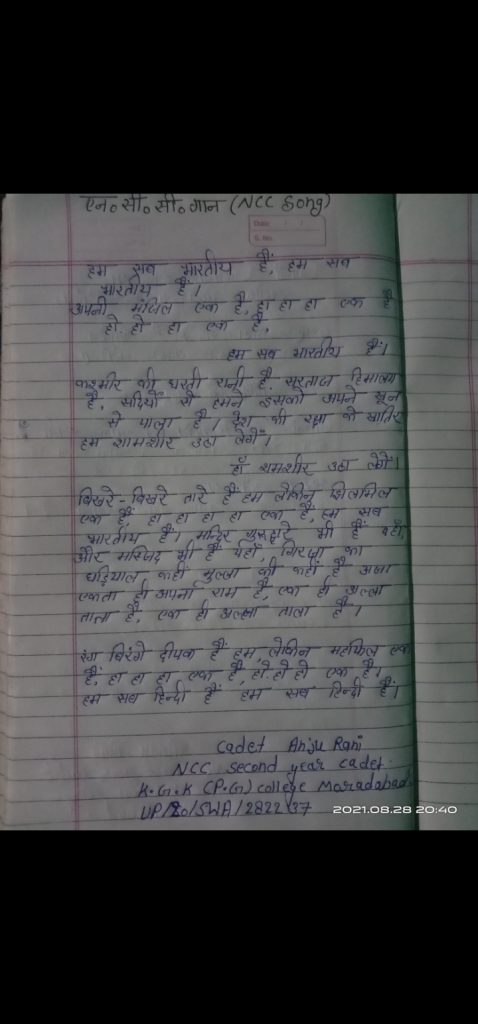 एन॰ सी॰ सी॰ गान (NCC Song)
Date / /
S. No.
हम सब भारतीय हैं, हम सब
भारतीय हैं।
अपनी मंजिल एक है, हा हा हा एक है
हो हो हा एक है,
हम सब भारतीय हैं।
कश्मीर की धरती रानी है. सरताज हिमालय
है, सदियों से हमने इसको अपने खून
से पाला है। देश की रक्षा के खातिर
हम शमशीर उठा लेगें।
हाँ शमशीर उठा लेगें।
बिखरे-बिखरे तारे हैं हम लेकिन झिलमिल
एक है, हा हा हा हा एक है, हम सब
भारतीय हैं। मन्दिर गुरुद्वारे भी हैं यहाँ,
और मस्जिद भी है यहाँ, गिरजा का
घड़ियाल कहीं मुल्ला की कहीं है अजा
एकता ही अपना राम है, एक ही अल्ला
ताला है, एक ही अल्ला ताला है।
रंग बिरंगे दीपक हैं हम, लेकिन महफिल एक
है, हा हा हा एक है, हो. हो हो एक है।
हम सब हिन्दी हैं हम सब हिन्दी हैं।
Cadet Anju Rani
NCC second year cadet.
K.G.K (P.G) college Moradabad
UP/20/SWA/2822 37
2021.08.28 20:40